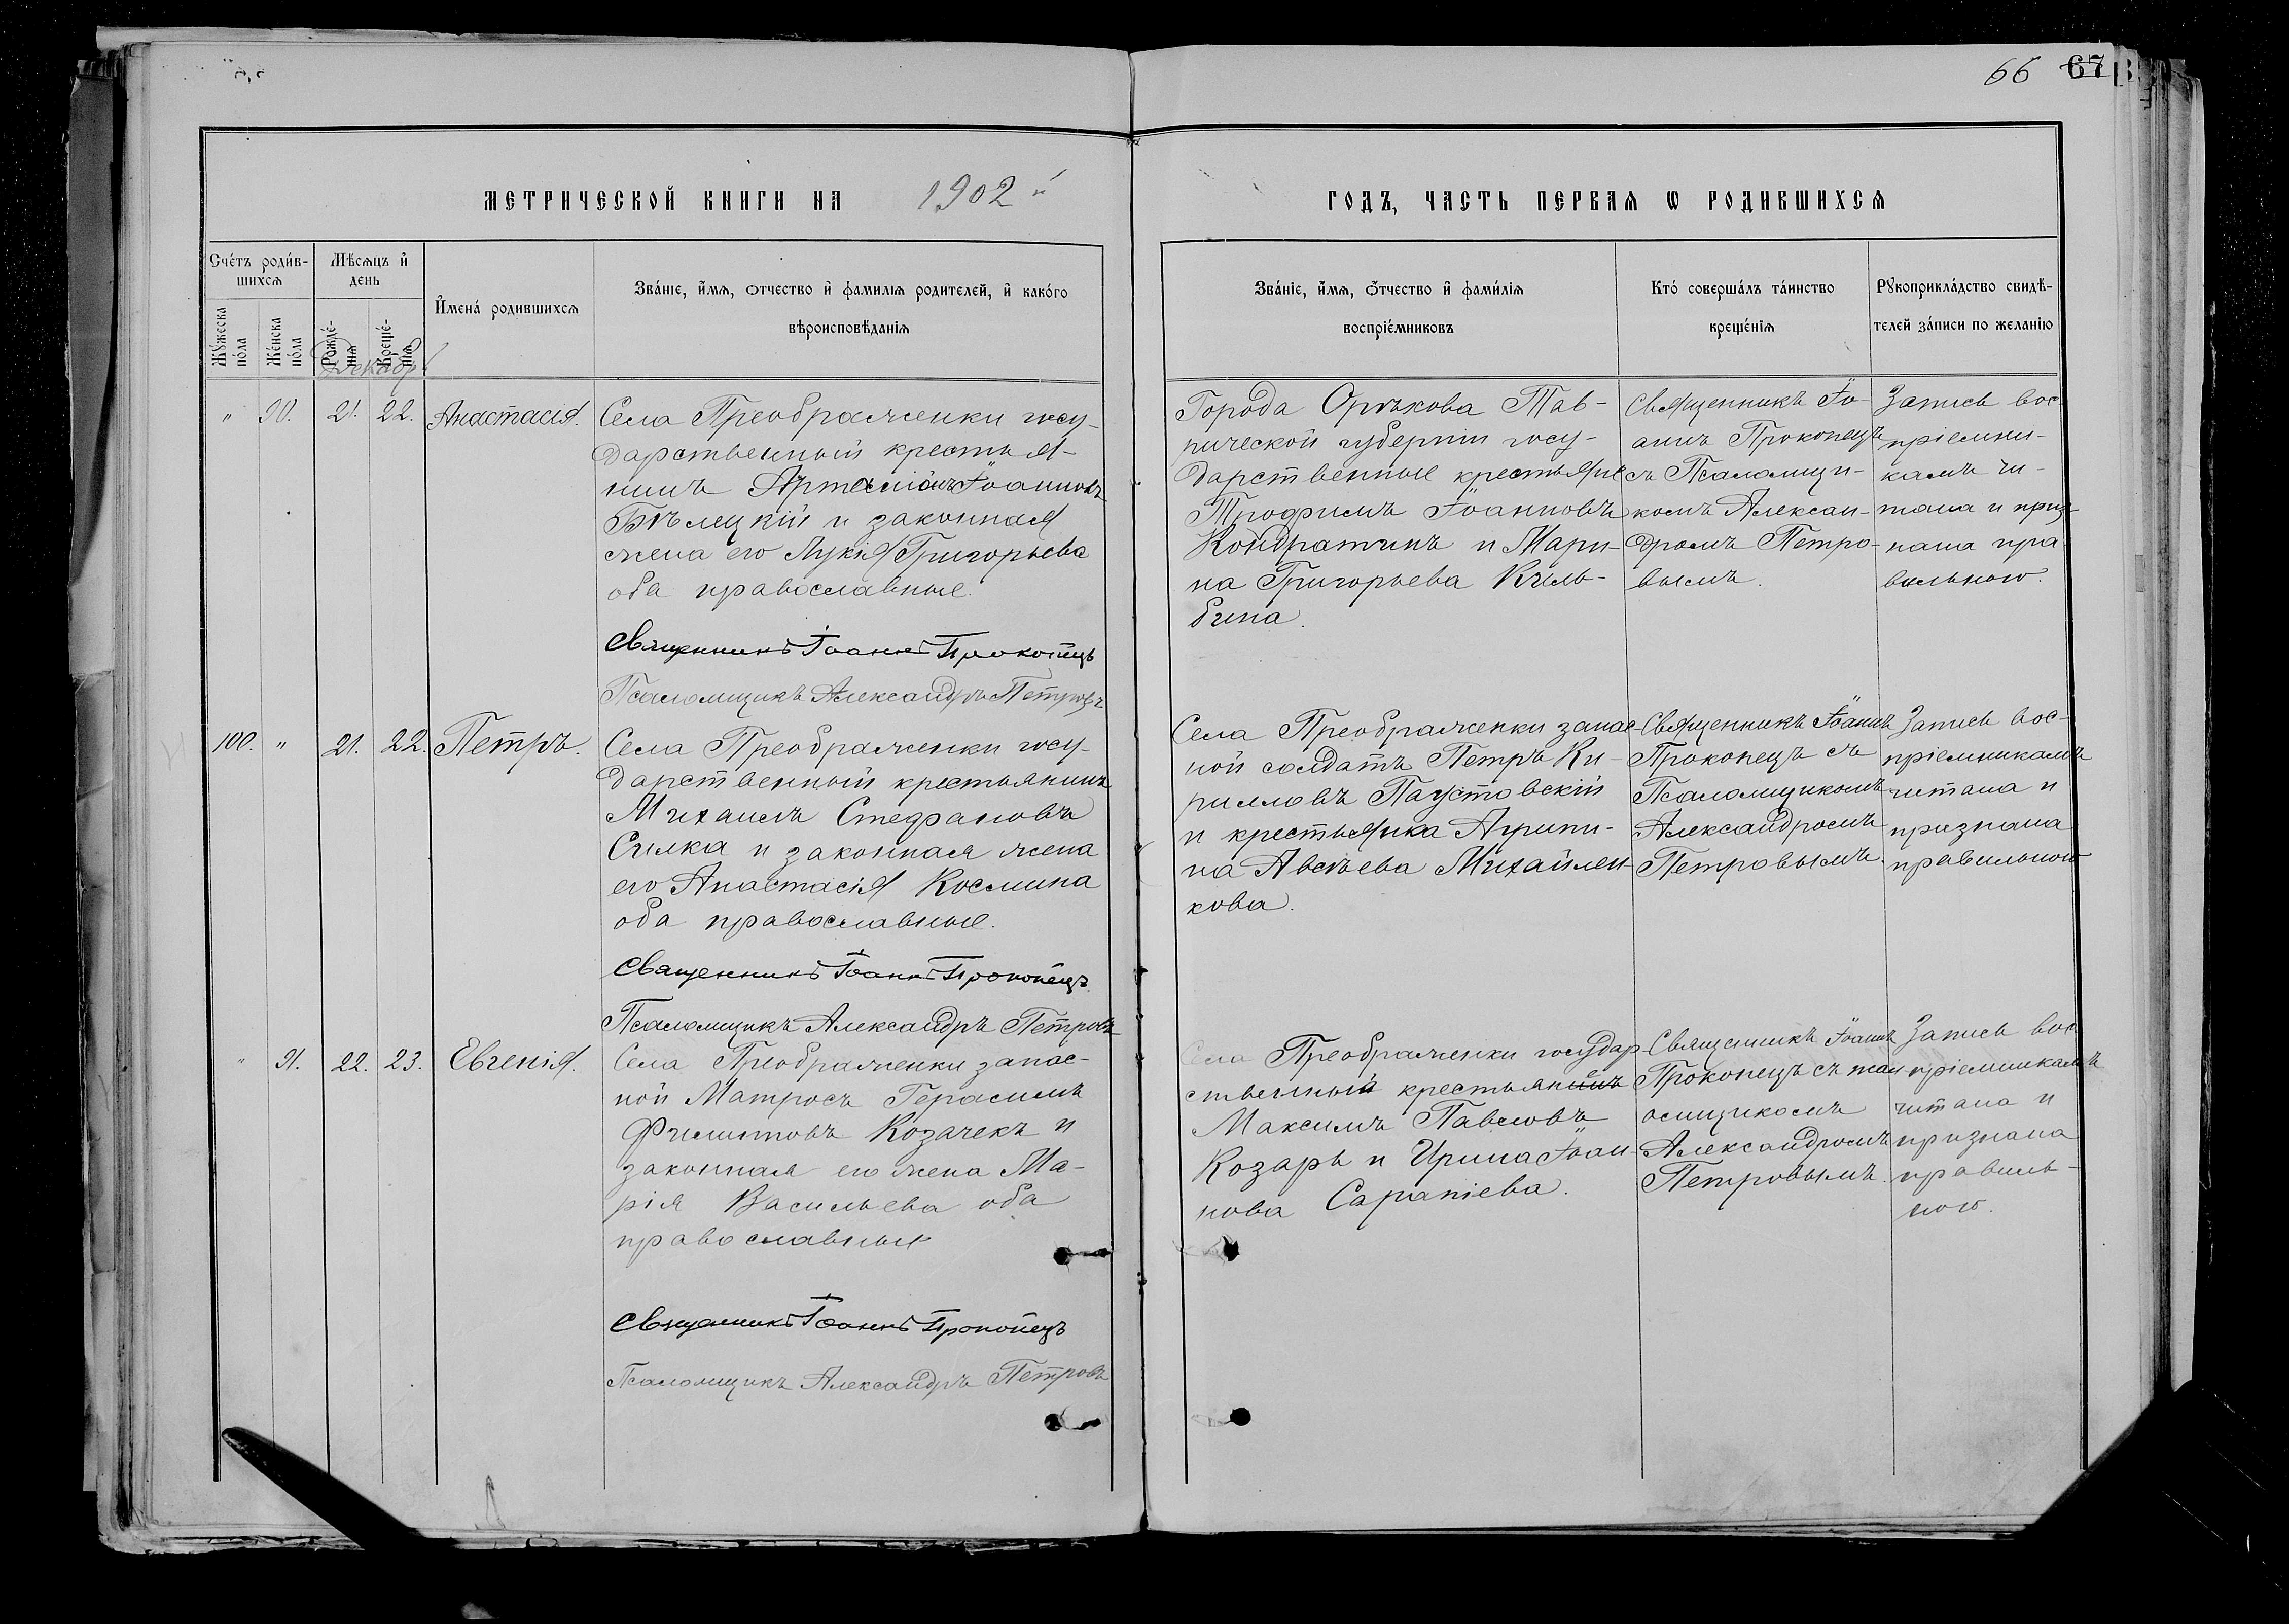 66 67
МЕТРИЧЕСКОЙ КНИГИ НА 1902й
ГОДЪ, ЧАСТЬ ПЕРВАЯ Ѡ РОДИВШИХСЯ
Счéтъ роди́в-
шихся
Мѣсяцъ и҆
день
Му́жеска
по́ла
Же́нска
по́ла
Рожде́-
нія
Креще́-
нія
И҆мена́ родившихся
Зва́ніе, и҆́мя, ѻтчество и҆ фамилія родителей, и҆ како́го
вѣроисповѣданія
Зва́ніе, и҆́мя, ѻ҆́тчество и҆ фами́лія
воспрїе́мниковъ
Кто́ соверша́лъ та́инство
креще́нія
Рꙋкоприкла́дство свидѣ-
телей за́писи по желанію
Декабрь
" 90. 21. 22. Анастасія.
Села Преображенки госу-
дарственный крестья-
нинъ Артамонъ Іоанновъ
Бѣлецкій и законная
жена его Лукія Григорьева
оба православные.
Священникъ Іоаннъ Прокопецъ
Псаломщикъ Александръ Петровъ
Города Орѣхова Тав-
рической губерніи госу-
дарственные крестьяне
Трофимъ Іоанновъ
Кондратикъ и Мари-
на Григорьева Куль-
бина.
Священникъ Іо-
аннъ Прокопецъ
съ Псаломщи-
комъ Алексан-
дромъ Петро-
вымъ.
Запись вос-
пріемни-
камъ чи-
тана и приз-
нана пра-
вильною.
100. " 21. 22. Петръ.
Села Преображенки госу-
дарственный крестьянинъ
Михаилъ Стефановъ
Силка и законная жена
его Анастасія Космина
оба православные.
Священникъ Іоаннъ Прокопецъ
Псаломщикъ Александръ Петровъ
Села Преображенки запас-
ной солдатъ Петръ Ки-
рилловъ Паустовскій
и крестьянка Агрипи-
на Авсѣева Михайлен-
кова.
Священникъ Іоаннъ
Прокопецъ съ
Псаломщикомъ
Александромъ
Петровымъ.
Запись вос-
пріемникамъ
читана и
признана
правильною
" 91. 22. 23. Евгенія.
Села Преображенки запас-
ной Матросъ Герасимъ
Филиповъ Козачекъ и
законная его жена Ма-
рія Васильева оба
православные
Священникъ Іоаннъ Прокопецъ
Псаломщикъ Александръ Петровъ
Села Преображенки государ-
ственный крестьянинъ
Максимъ Павловъ
Козарь и Ирина Іоан-
нова Сарапіева.
Священникъ Іоаннъ
Прокопецъ съ
омщикомъ
Александромъ
Петровымъ.
Запись вос-
пріемникамъ
читана и
признана
правиль-
ною.